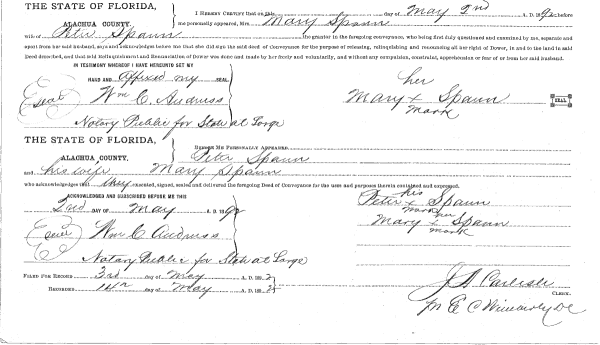 THE STATE OF FLORIDA,
ALACHUA COUNTY.
I HEREBY CERTIFY that on this day of May 2nd A. D. 1892 before
me personally appeared, Mrs Mary Spann
wife of Peter Spann the grantor in the foregoing conveyance, who being first duly questioned and examined by me, separate and
apart from her said husband, says and acknowledges before me that she did sign the said deed of Conveyance for the purpose of releasing, relinquishing and renouncing all her right of Dower, in and to the land in said
Deed described, and that said Relinquishment and Renunciation of Dower was done and made by her freely and voluntarily, and without any compulsion, constraint, apprehension or fear of or from her said husband.
IN TESTIMONY WHEREOF I HAVE HEREUNTO SET MY
HAND and Affixed my SEAL
Seal Wm C. Andruss
Notary Public for State at Large
her
Mary x Spann SEAL
mark
THE STATE OF FLORIDA,
ALACHUA COUNTY,
BEFORE ME PERSONALLY APPEARED Peter Spann
and his wife Mary Spann
who acknowledges that they executed, signed, sealed and delivered the foregoing Deed of Conveyance for the uses and purposes therein contained and expressed.
ACKNOWLEDGED AND SUBSCRIBED BEFORE ME THIS
2nd DAY OF May A. D. 1892
Seal Wm C Andruss
Notary Public for State at Large
his
Peter x Spann
mark her
Mary x Spann
mark
FILED FOR RECORD 3rd day of May A. D. 1892
RECORDED 14th day of May A. D. 1892
J A Carlisle
CLERK.
M E C Wimberly DC